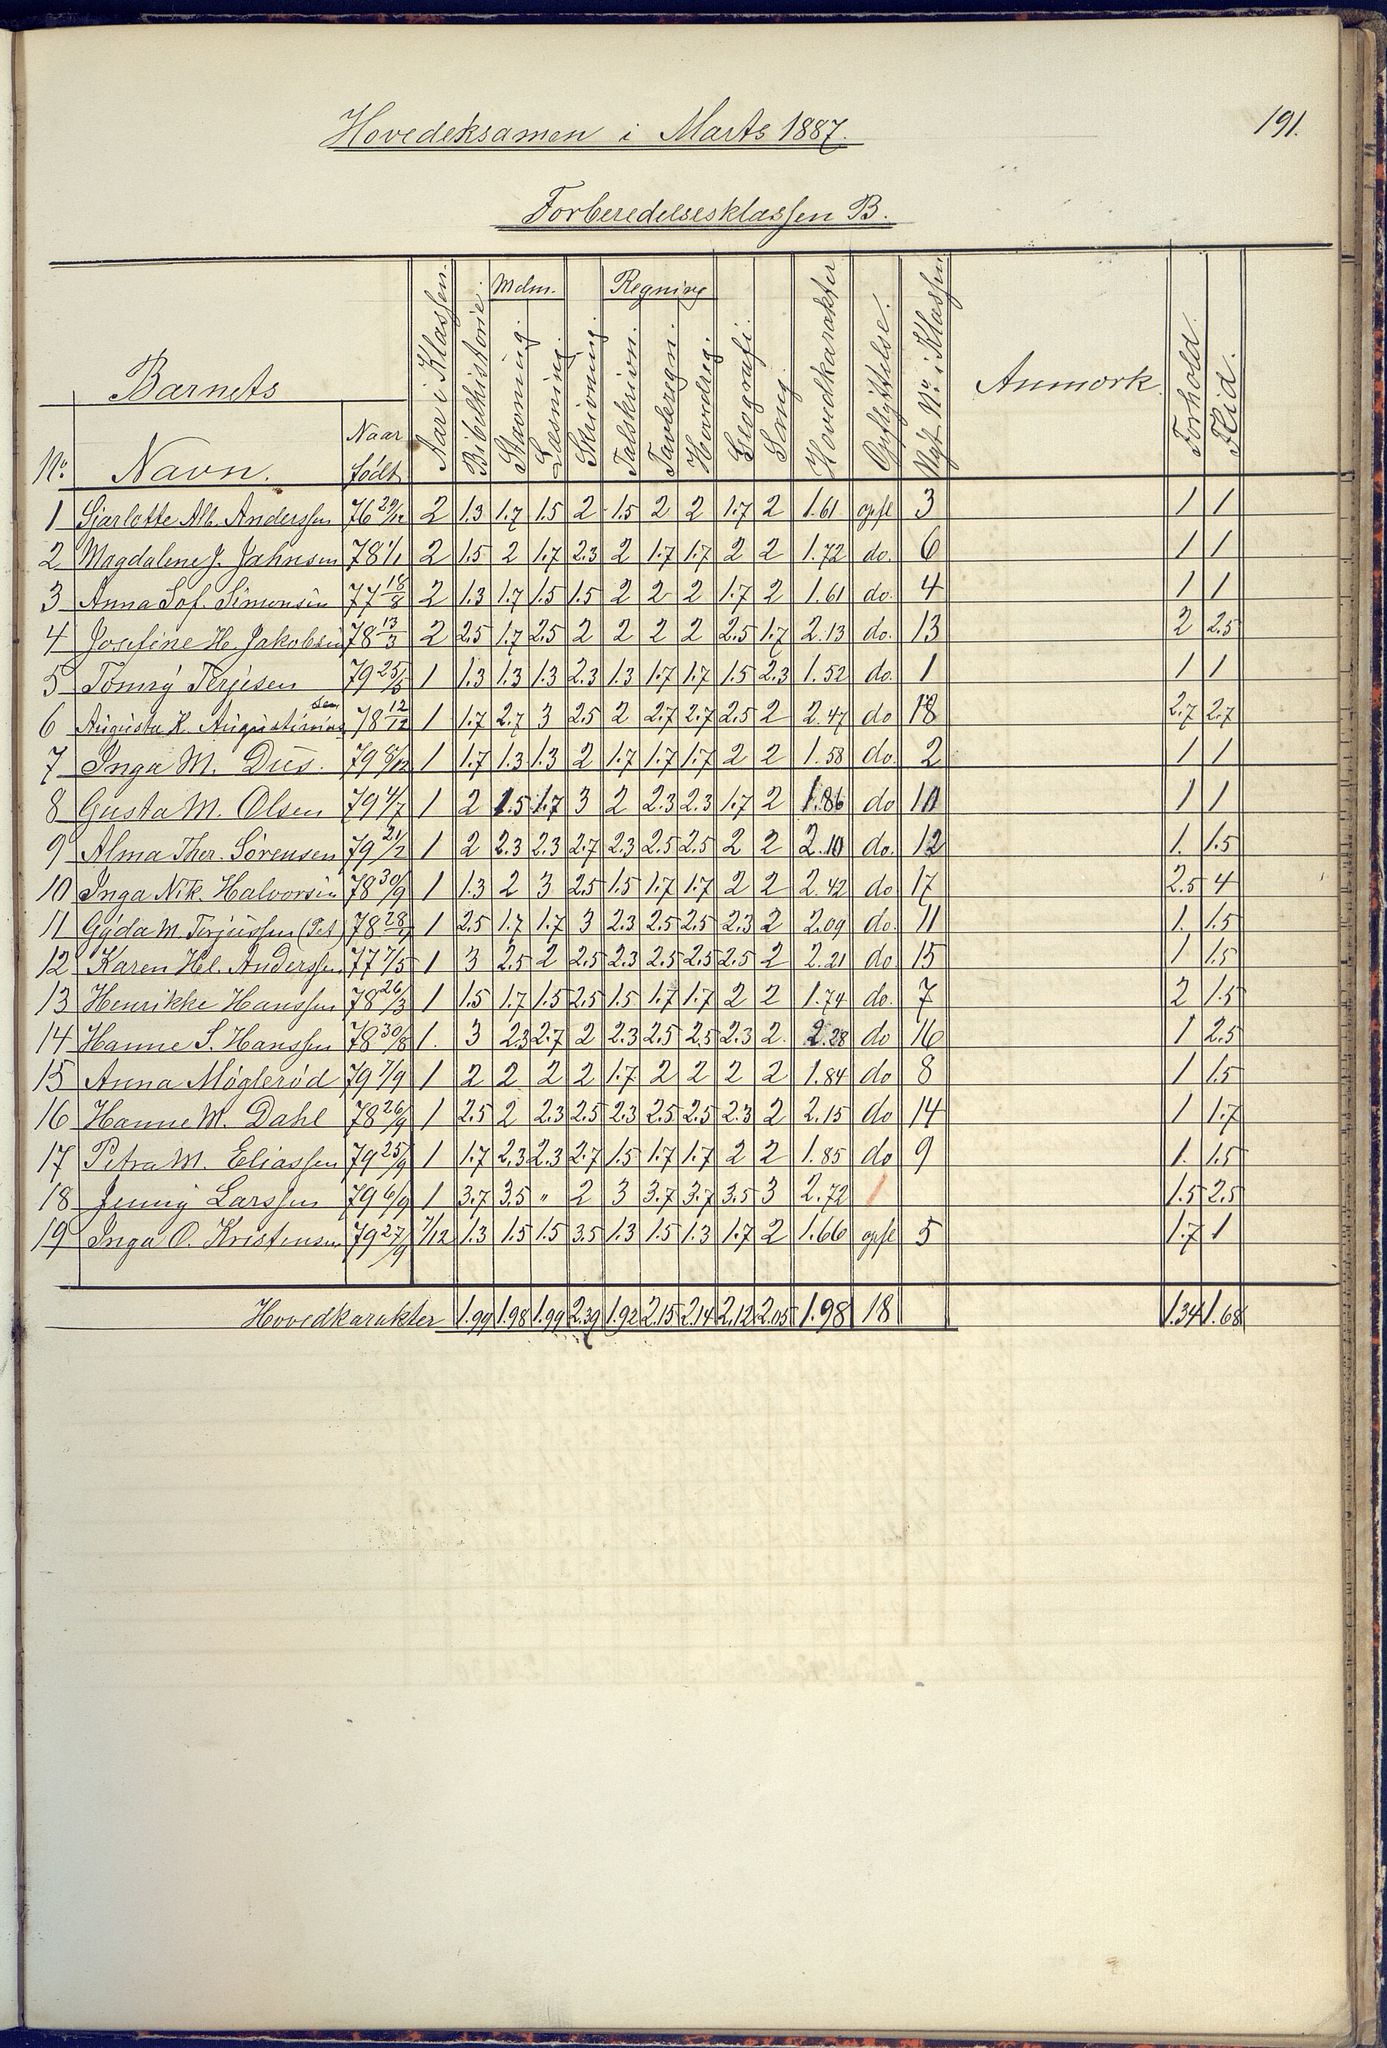 191.
Hovedeksamen i Marts 1887.
Forberedelsesklassen B.
No. Barnets Navn. Naar født Aar i Klassen. Bibelhistorie. Mdm. Stavning. Læsning. Skrivning. Regning Talskrivn. Tavleregn. Hovedreg. Geografi. Sang. Hovedkarakter Opflyttelse. Nyt No. i Klassen Anmærk. Forhold. Flid.
1 Sjarlotte Alb. Anderssen 76 29/12 2 1.3 1.7 1.5 2 1.5 2 2 1.7 2 1.61 opfl 3 1 1
2 Magdalene J. Jahnsen 78 1/1 2 1.5 2 1.7 2.3 2 1.7 1.7 2 2 1.72 do. 6 1 1
3 Anna Sof. Simonsen 77 18/8 2 1.3 1.7 1.5 1.5 2 2 2 1.7 2 1.61 do. 4 1 1
4 Josefine H. Jakobsen 78 13/3 2 2.5 1.7 2.5 2 2 2 2 2.5 1.7 2.13 do. 13 2 2.5
5 Tomry Terjesen 79 25/5 1 1.3 1.3 1.3 2.3 1.3 1.7 1.7 1.5 2.3 1.52 do. 1 1 1
6 Augusta K. Augustinussen 78 12/12 1 1.7 2.7 3 2.5 2 2.7 2.7 2.5 2 2.47 do 18 2.7 2.7
7 Inga M. Dus. 79 8/12 1 1.7 1.3 1.3 2 1.7 1.7 1.7 2 2 1.58 do. 2 1 1
8 Gusta M. Olsen 79 4/7 1 2 1.5 1.7 3 2 2.3 2.3 1.7 2 1.86 do 10 1 1
9 Alma Ther. Sörensen 79 21/2 1 2 2.3 2.3 2.7 2.3 2.5 2.5 2 2 2.10 do. 12 1. 1.5
10 Inga Nik. Halvorsen 78 30/9 1 1.3 2 3 2.5 1.5 1.7 1.7 2 2 2.42 do 17 2.5 4
11 Gyda M. Terjussen (Pet) 78 1 2.5 1.7 1.7 3 2.3 2.5 2.5 2.3 2 2.09 do. 11 1. 1.5
12 Karen Hel. Anderssen 77 7/5 1 3 2.5 2 2.5 2.3 2.5 2.5 2.5 2 2.21 do 15 1 1.5
13 Henrikke Hanssen 78 26/3 1 1.5 1.7 1.5 2.5 1.5 1.7 1.7 2 2 1.74 do. 7 2 1.5
14 Hanne S. Hanssen 78 30/8 1. 3 2.3 2.7 2 2.3 2.5 2.5 2.3 2. 2.28 do 16 1 2.5
15 Anna Möglerød 79 7/9 1 2 2 2 2 1.7 2 2 2 2 1.84 do 8 1 1.5
16 Hanne M. Dahl 78 26/9 1 2.5 2 2.3 2.5 2.3 2.5 2.5 2.3 2 2.15 do 14 1 1.7
17 Petra M. Eliassen 79 25/9 1 1.7 2.3 2.3 2.7 1.5 1.7 1.7 2 2 1.85 do 9 1. 1.5
18 Jenny Larssen 79 6/9 1 3.7 3.5 " 2 3 3.7 3.7 3.5 3 2.72 / 1.5 2.5
19 Inga O. Kristensen 79 27/9 7/12 1.3 1.5 1.5 3.5 1.3 1.5 1.3 1.7 2 1.66 opfl 5 1.7 1
Hovedkarakter 1.99 1.98 1.99 2.39 1.92 2.15 2.14 2.12 2.05 1.98 18 1.34 1.68